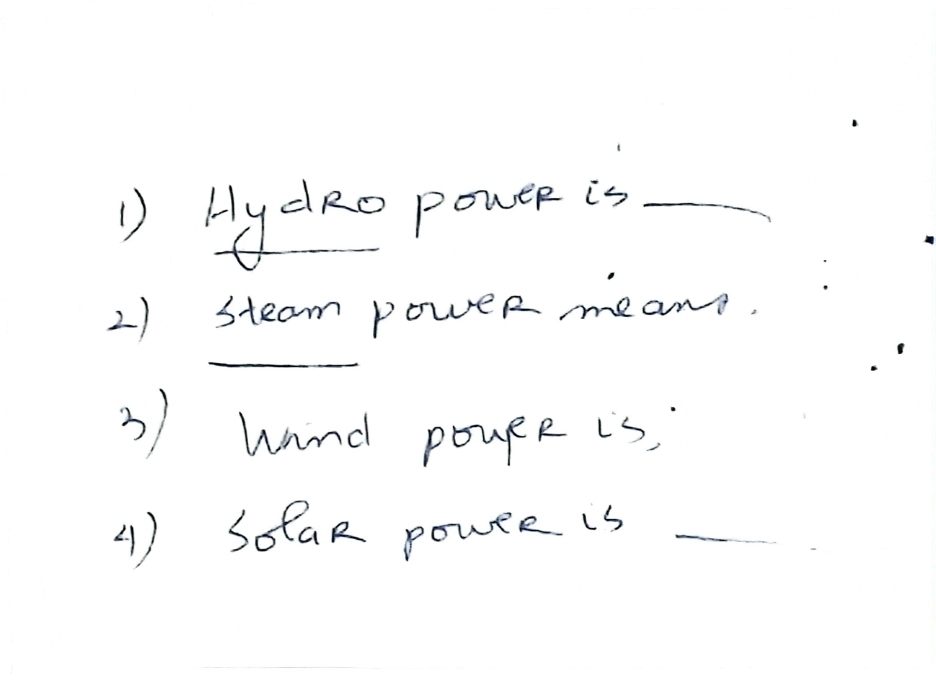 1) Hydro power is —
2) steam power means.
3) Wind power is,
4) Solar power is —